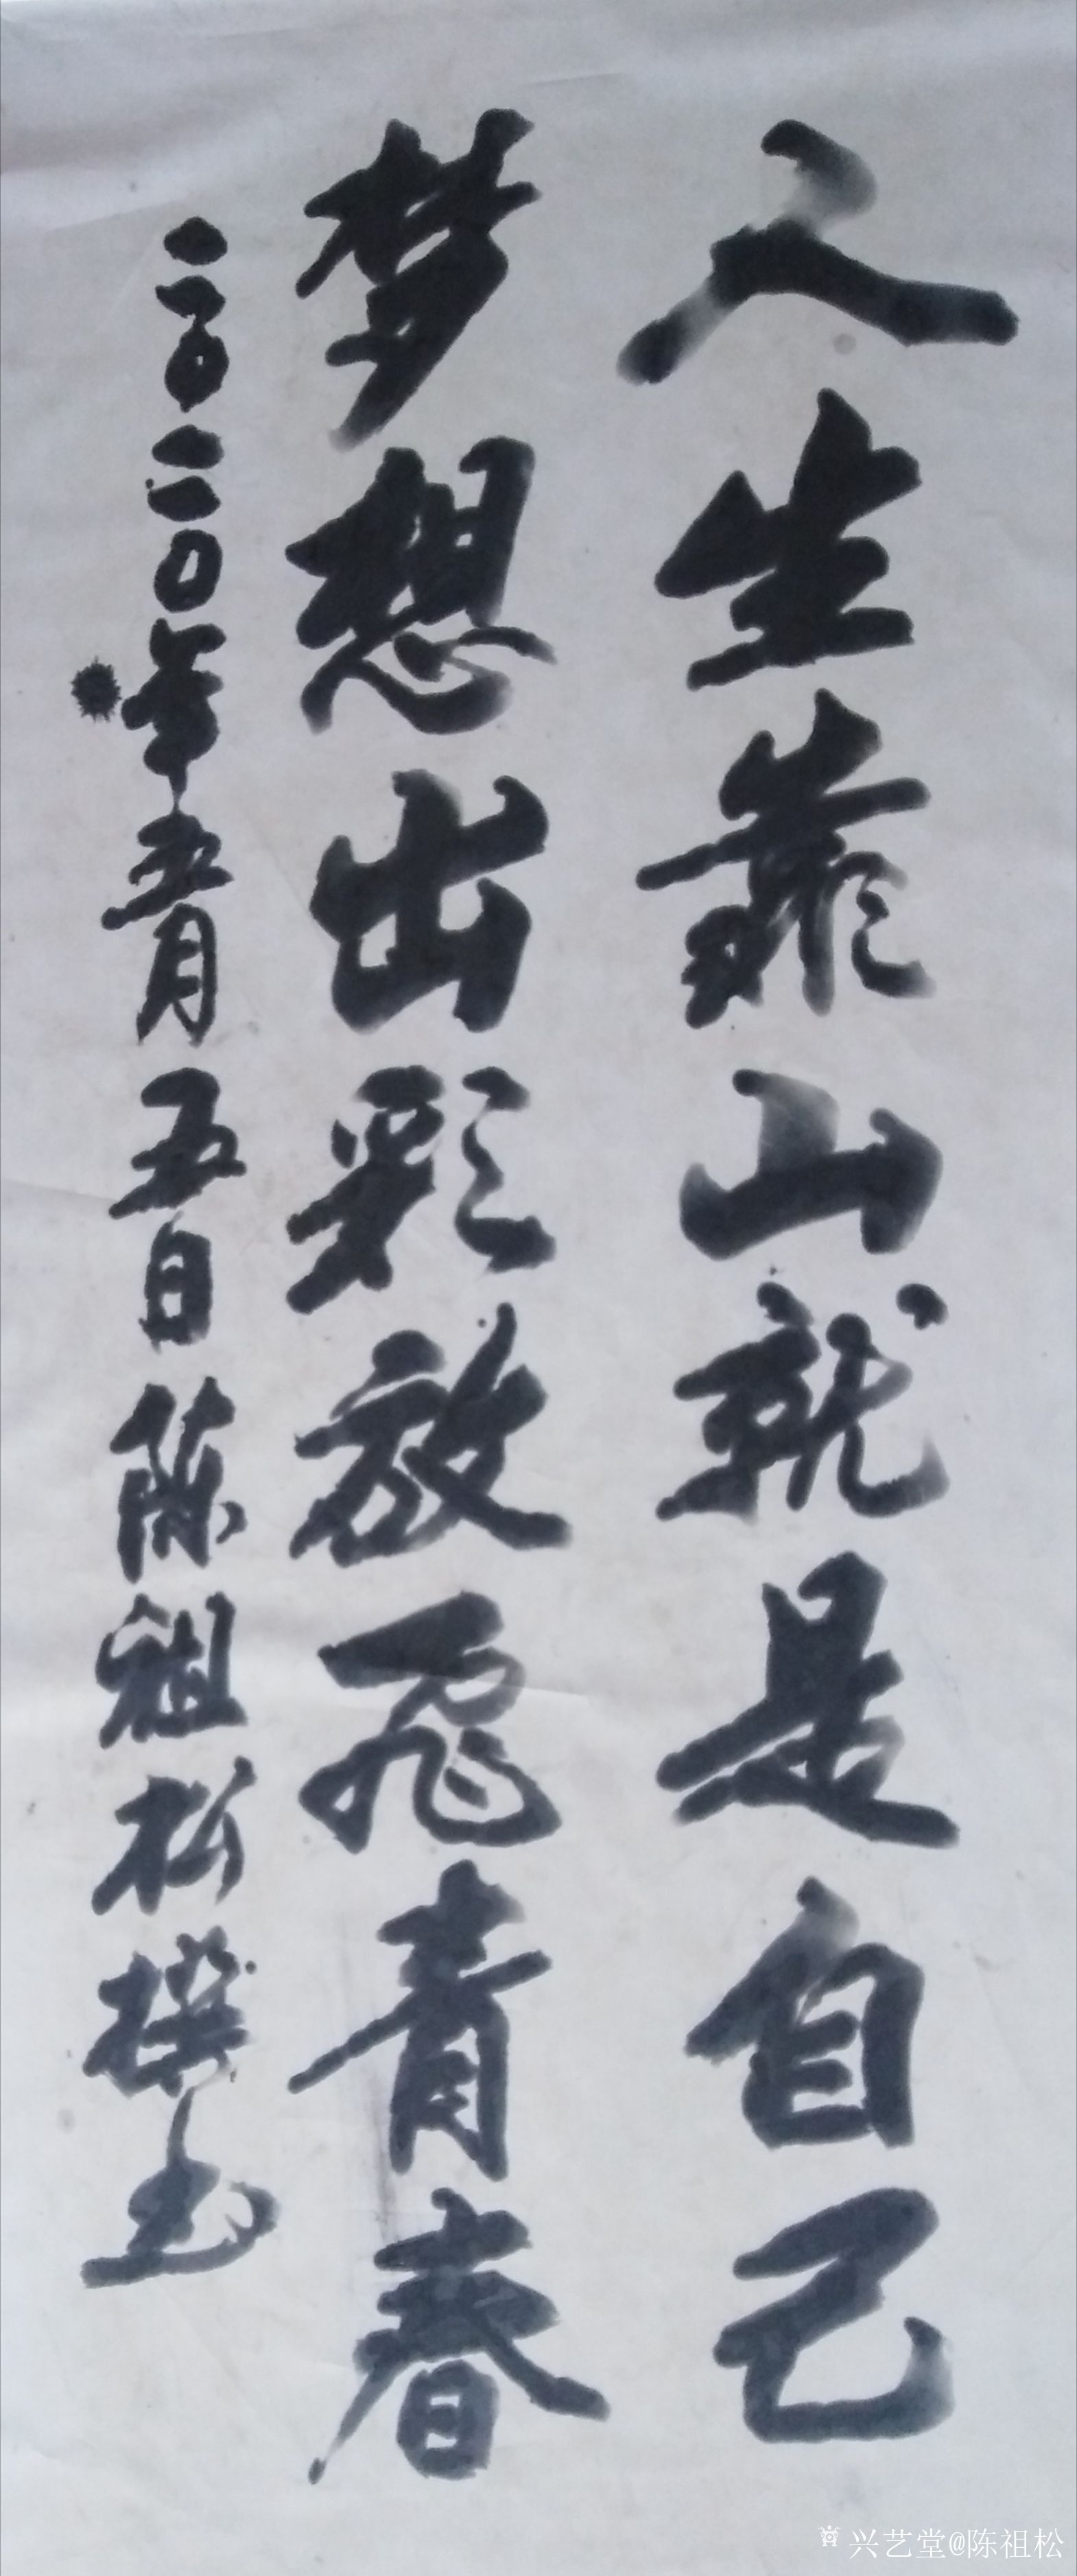 人生靠山就是自己
梦想出彩放飞青春
二0二0年五月五日陈祖松撰书
兴艺堂@陈祖松